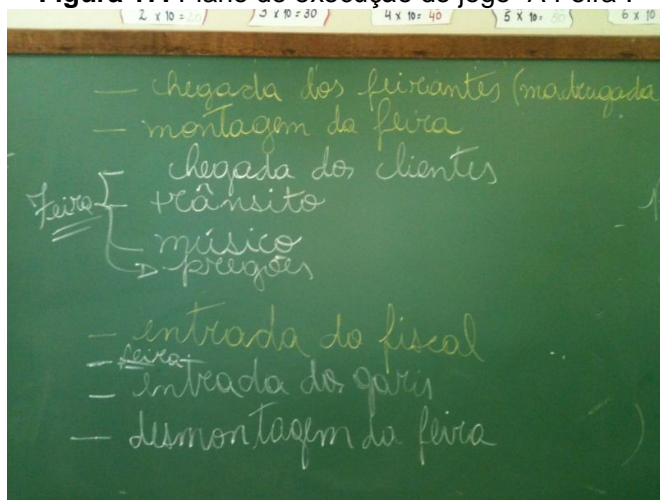 2 x 10 = 20 3 x 10 = 30 4 x 10 = 40 5 x 10 = 50 6 x 10
— chegada dos feirantes (madrugada
— montagem da feira
chegada dos clientes
Feira trânsito
— músico
pregões
— entrada do fiscal
— feira
— entrada dos garis
— desmontagem da feira